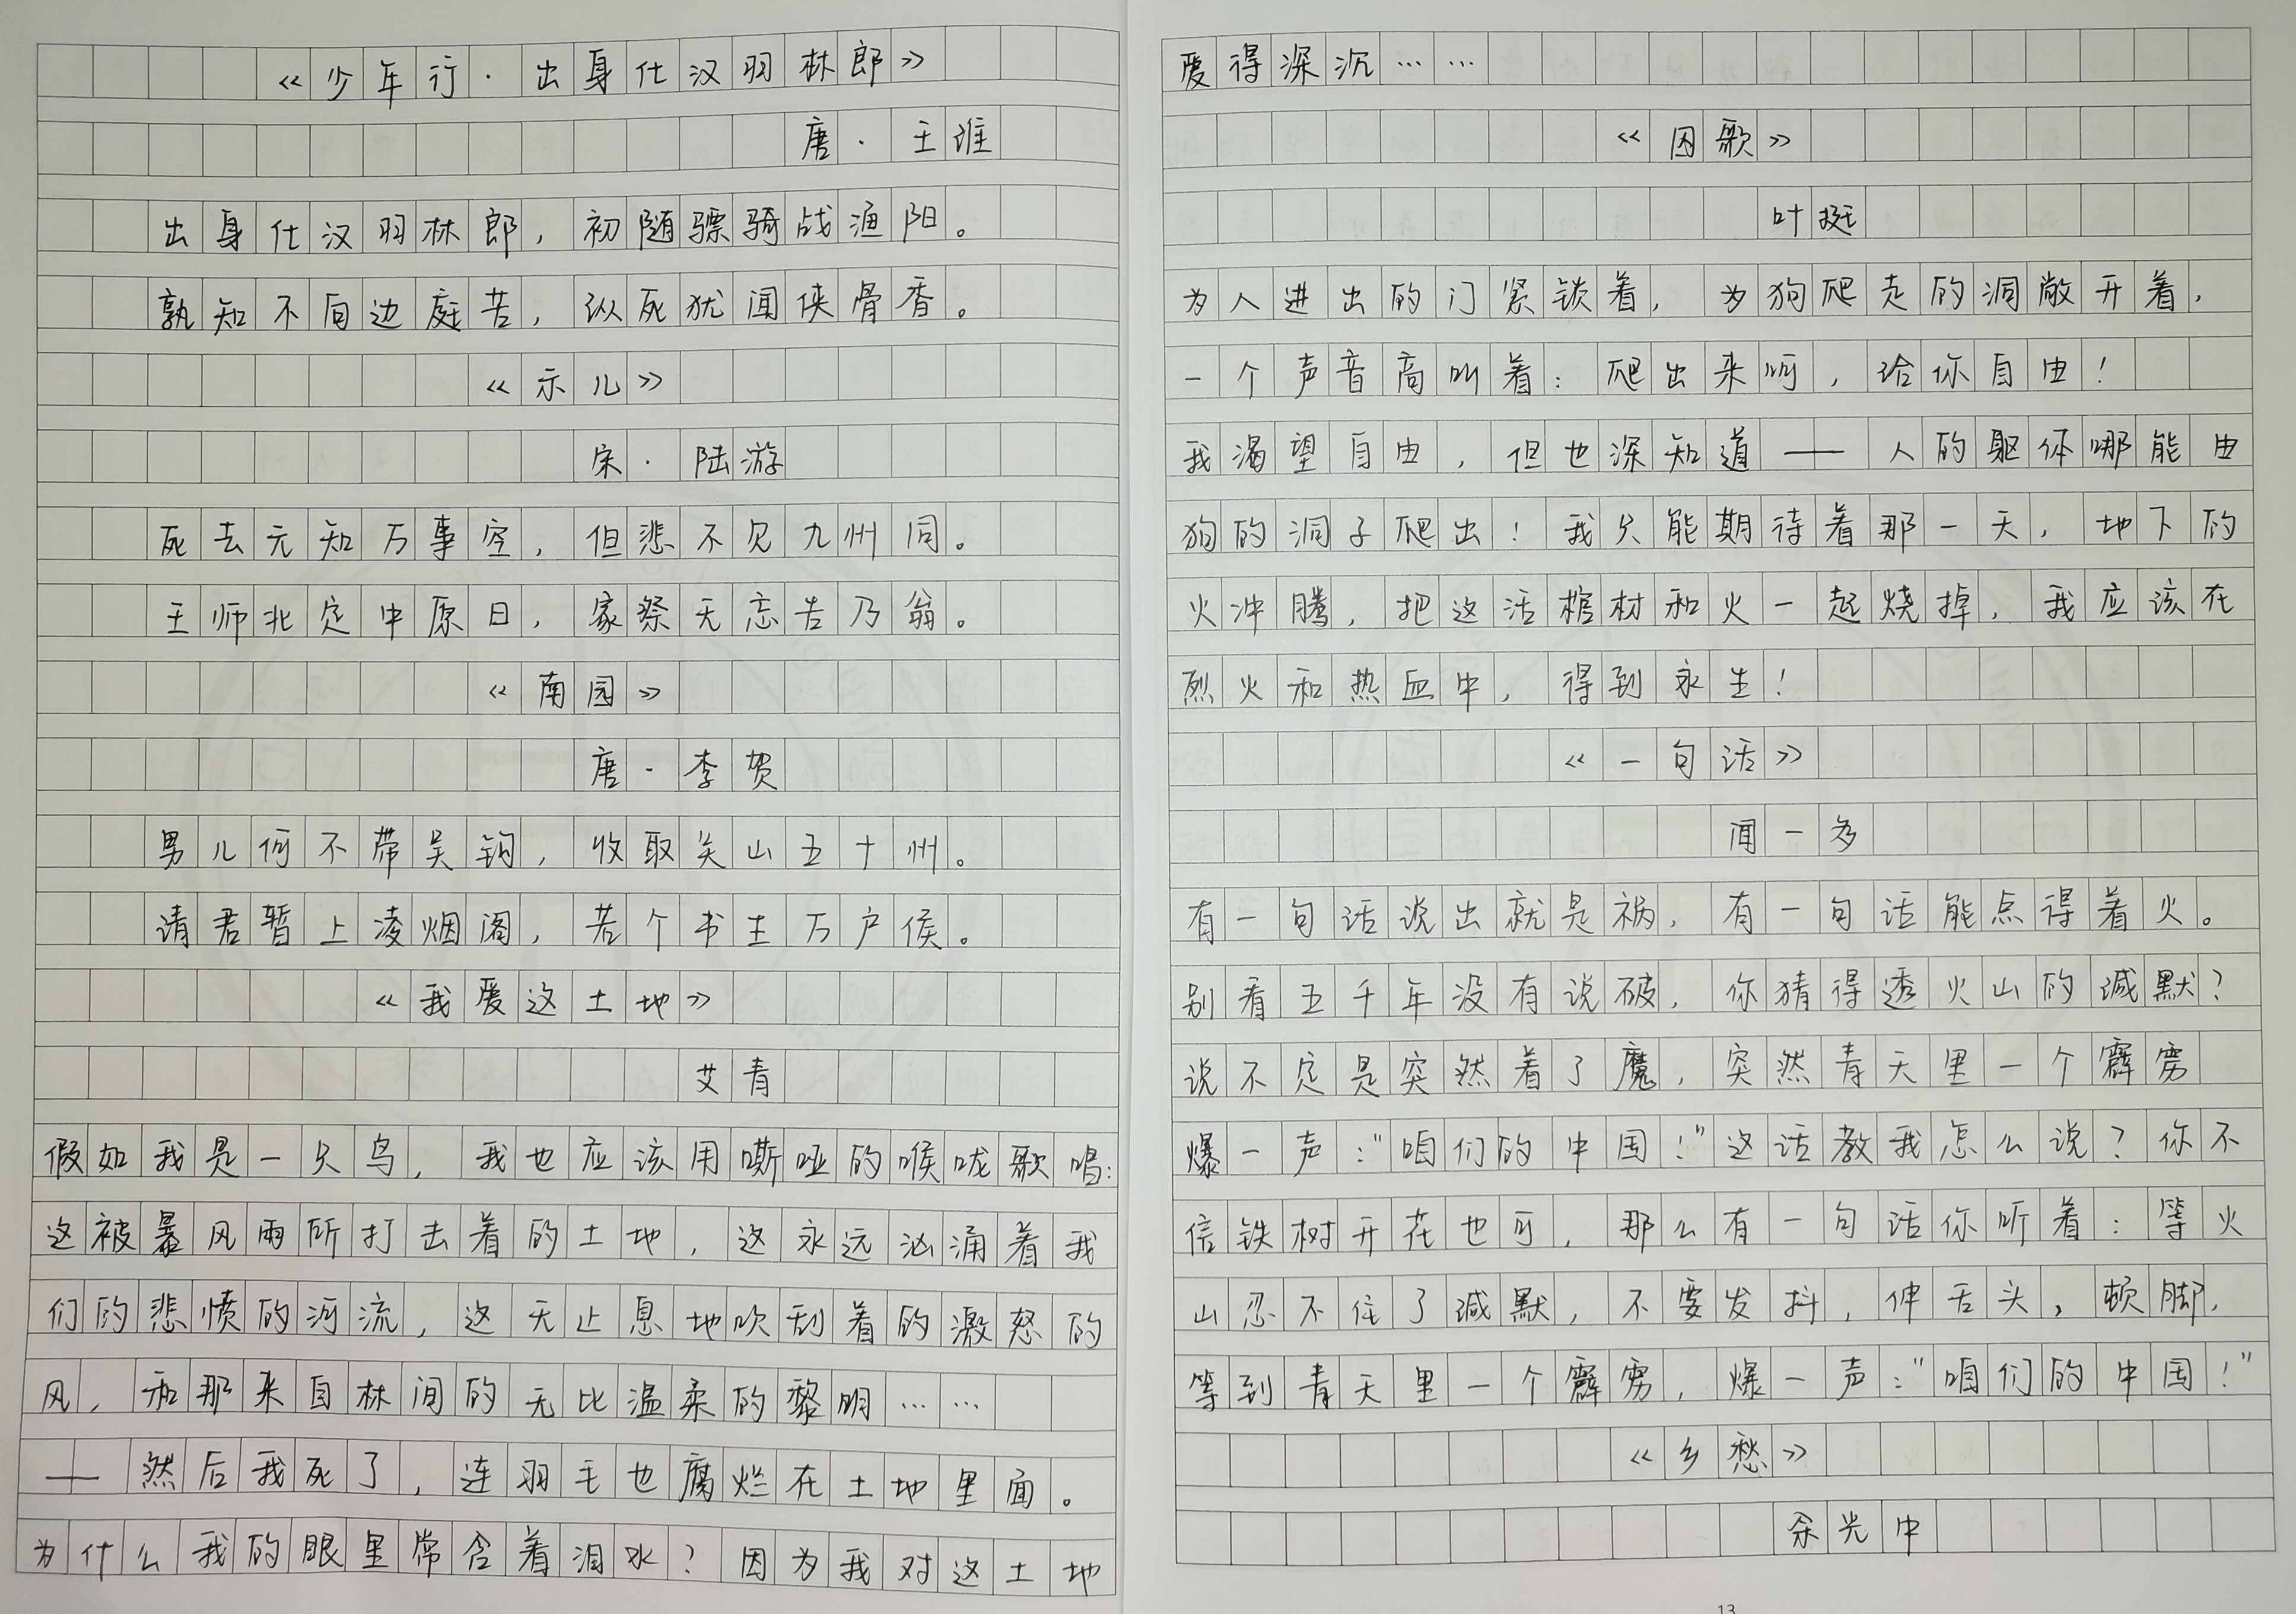 《少年行·出身仕汉羽林郎》
唐·王维
出身仕汉羽林郎，初随骠骑战渔阳。
孰知不向边庭苦，纵死犹闻侠骨香。
《示儿》
宋·陆游
死去元知万事空，但悲不见九州同。
王师北定中原日，家祭无忘告乃翁。
《南园》
唐·李贺
男儿何不带吴钩，收取关山五十州。
请君暂上凌烟阁，若个书生万户侯。
《我爱这土地》
艾青
假如我是一只鸟，我也应该用嘶哑的喉咙歌唱：
这被暴风雨所打击着的土地，这永远汹涌着我
们的悲愤的河流，这无止息地吹刮着的激怒的
风，和那来自林间的无比温柔的黎明……
——然后我死了，连羽毛也腐烂在土地里面。
为什么我的眼里常含着泪水？因为我对这土地
爱得深沉……
《囚歌》
叶挺
为人进出的门紧锁着，为狗爬走的洞敞开着，
一个声音高叫着：爬出来啊，给你自由！
我渴望自由，但也深知道——人的躯体哪能由
狗的洞子爬出！我只能期待着那一天，地下的
火冲腾，把这活棺材和火一起烧掉，我应该在
烈火和热血中，得到永生！
《一句话》
闻一多
有一句话说出就是祸，有一句话能点得着火。
别看五千年没有说破，你猜得透火山的缄默？
说不定是突然着了魔，突然青天里一个霹雳
爆一声：“咱们的中国！”这话教我怎么说？你不
信铁树开花也可，那么有一句话你听着：等火
山忍不住了缄默，不要发抖，伸舌头，顿脚，
等到青天里一个霹雳，爆一声：“咱们的中国！”
《乡愁》
余光中
13